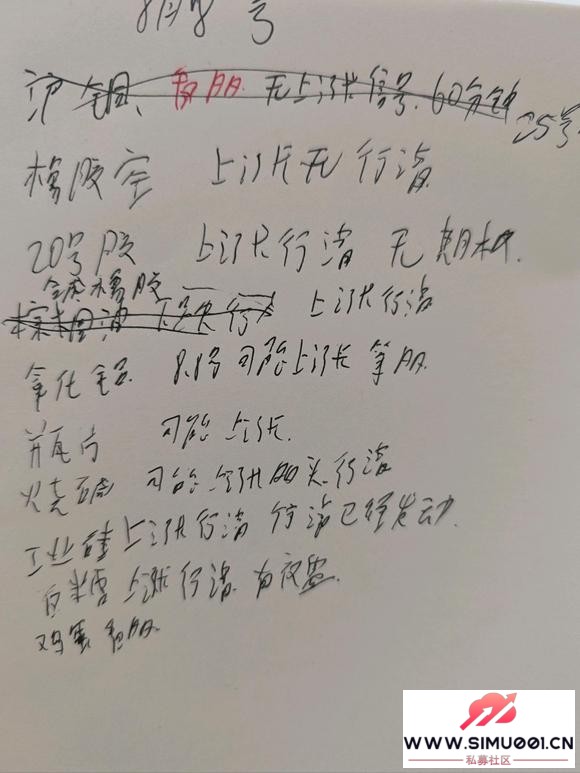 8月8号
沪铜、看明 无上涨信号、60分钟
25号
橡胶空 上涨无行情
20号胶 上涨行情 无期权.
合成橡胶
棕榈油 下跌行 上涨行情
氧化铝 8.8号可能上涨 等明
瓶片 可能上涨.
烧碱 可能 行情
工业硅上涨行情 行情已经发动.
白糖 上涨行情 有夜盘.
鸡蛋 看明
WWW.SIMU001.CN
私募社区